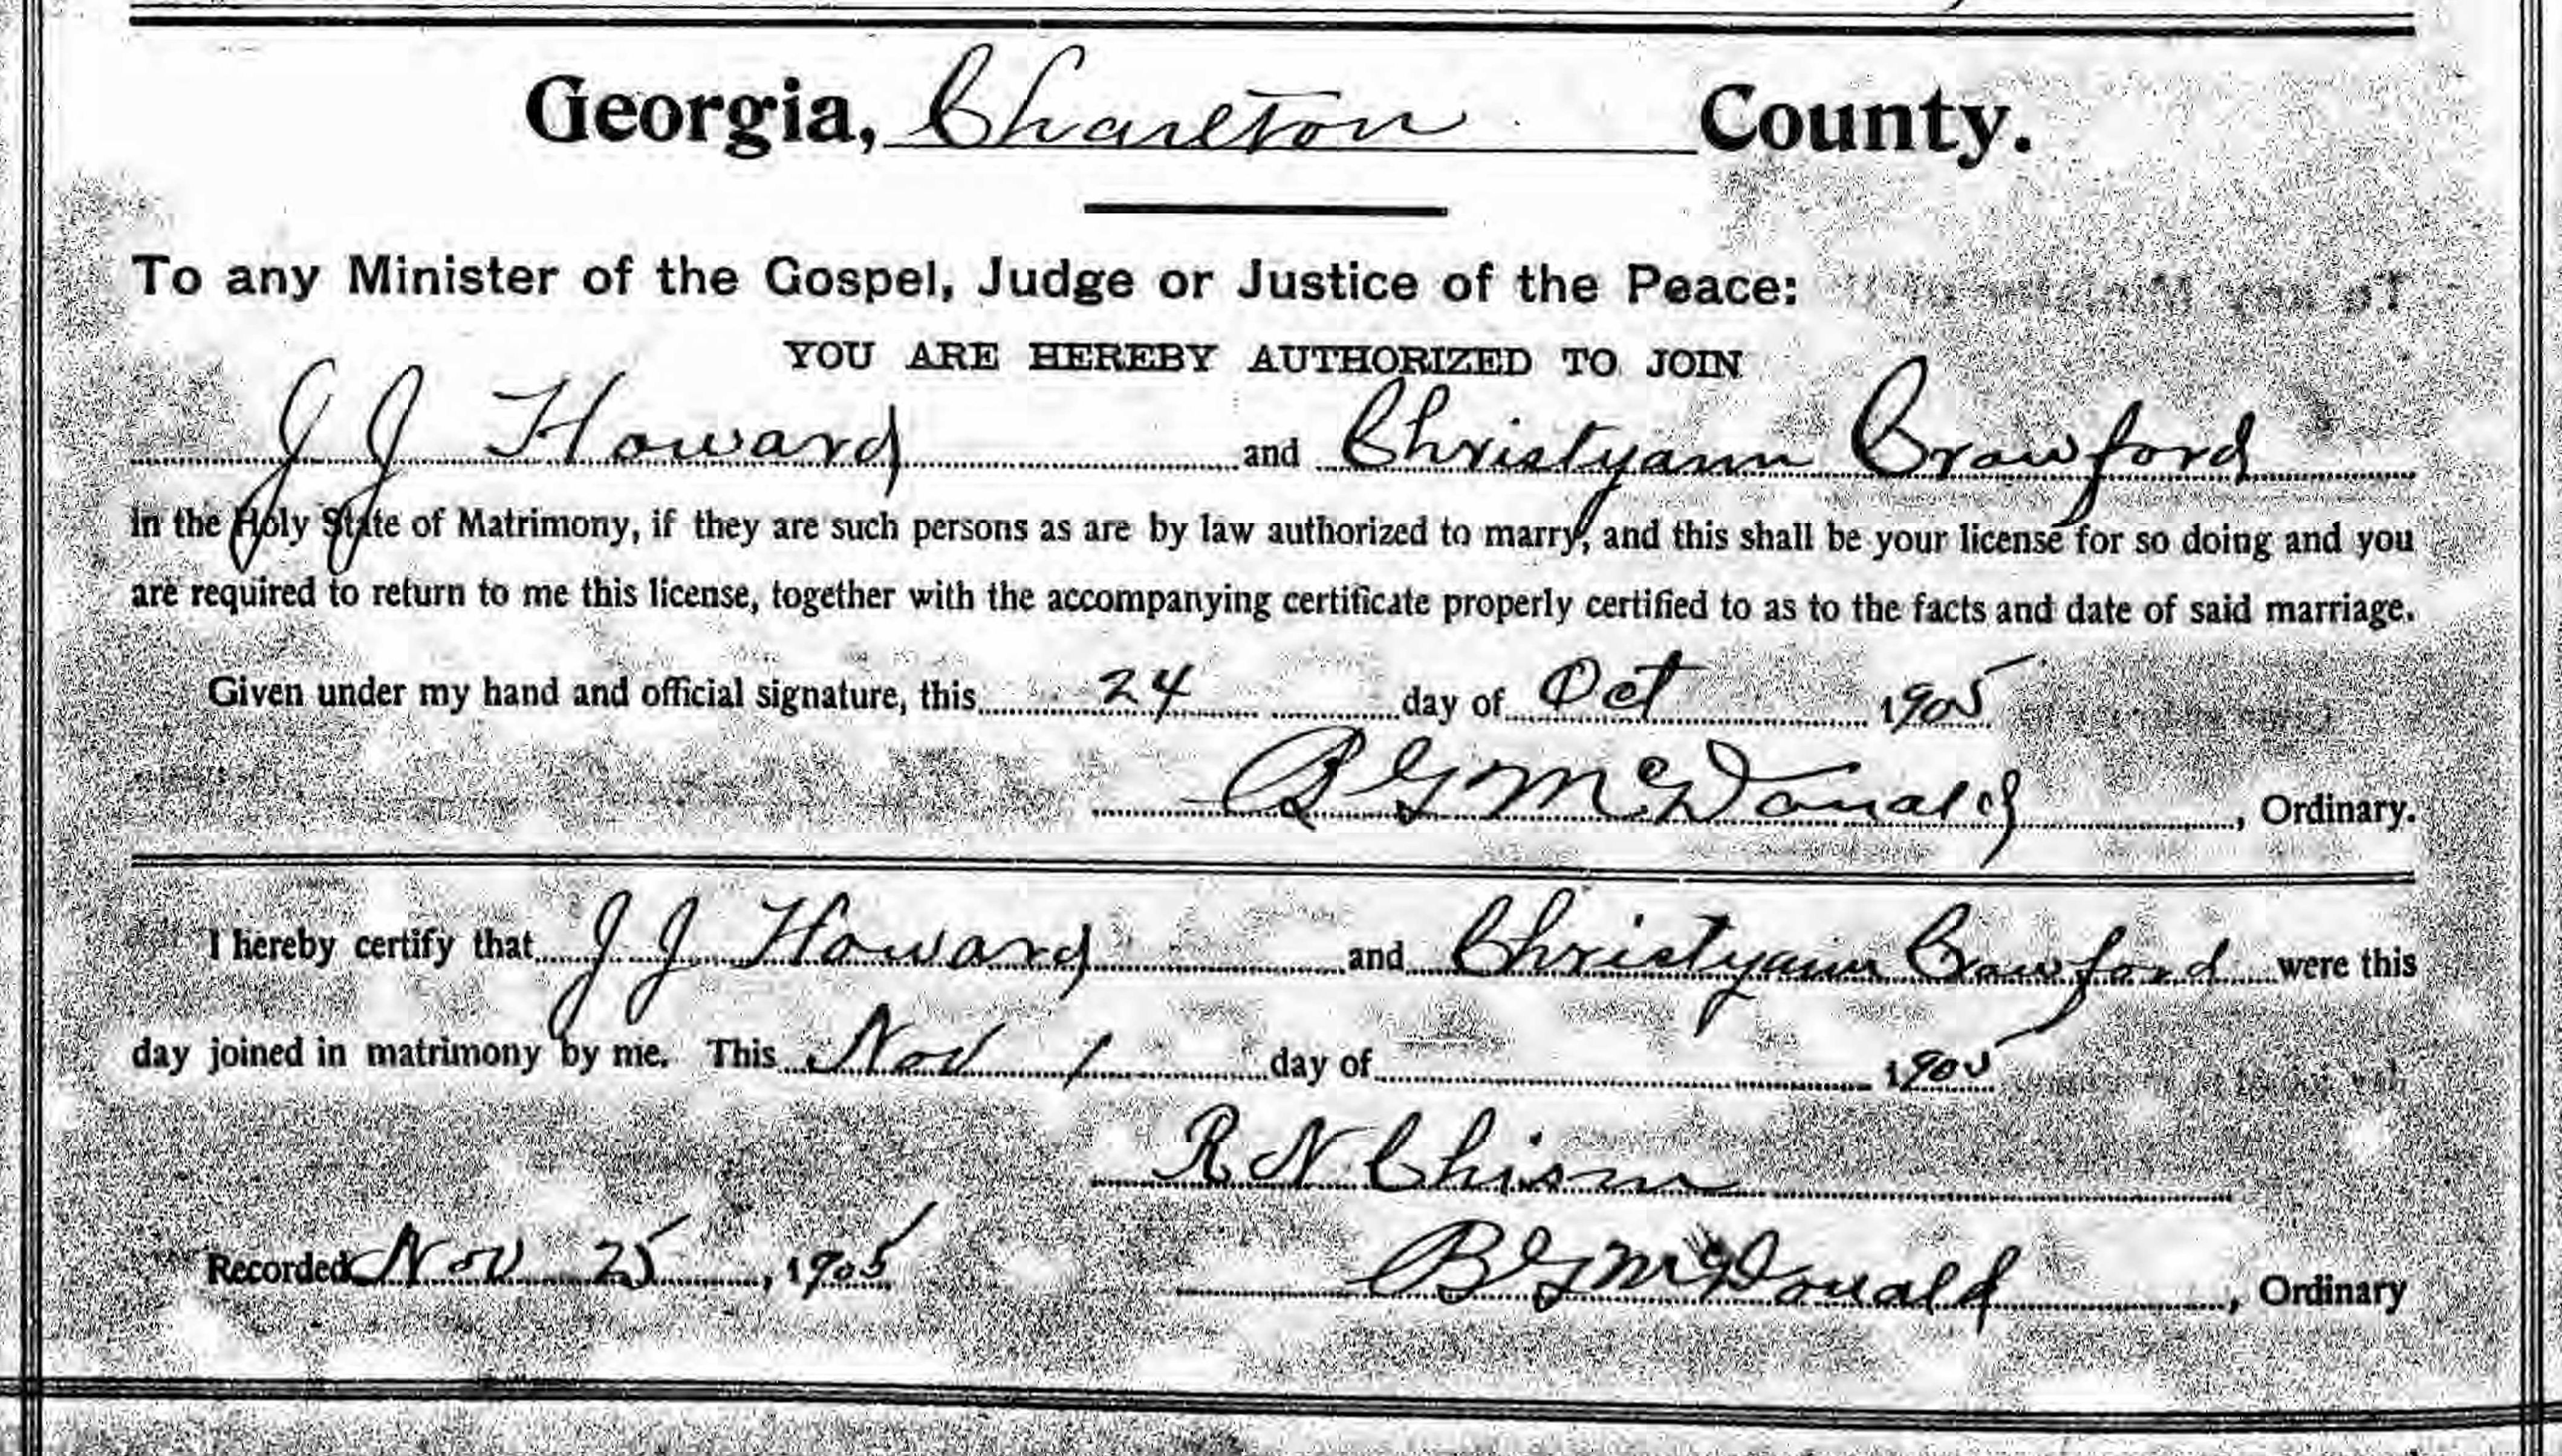 Georgia, Charlton County.
To any Minister of the Gospel, Judge or Justice of the Peace:
YOU ARE HEREBY AUTHORIZED TO JOIN
J J Howard and Christyann Crawford
in the Holy State of Matrimony, if they are such persons as are by law authorized to marry, and this shall be your license for so doing and you
are required to return to me this license, together with the accompanying certificate properly certified to as to the facts and date of said marriage.
Given under my hand and official signature, this 24 day of Oct 1905
B G McDonald, Ordinary.
I hereby certify that J J Howard and Christyann Crawford were this
day joined in matrimony by me. This Nov 1 day of 1905
R N Chism
Recorded Nov 25, 1905 B G McDonald, Ordinary